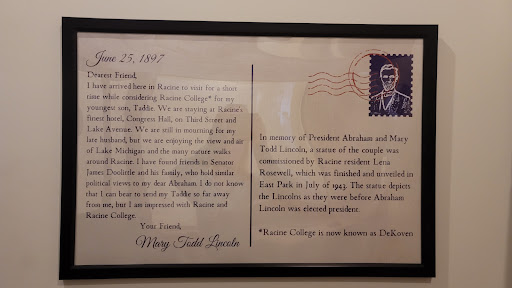 June 25, 1897
Dearest Friend,
I have arrived here in Racine to visit for a short
time while considering Racine College* for my
youngest son, Taddie. We are staying at Racine's
finest hotel, Congress Hall, on Third Street and
Lake Avenue. We are still in mourning for my
late husband, but we are enjoying the view and air
of Lake Michigan and the many nature walks
around Racine. I have found friends in Senator
James Doolittle and his family, who hold similar
political views to my dear Abraham. I do not know
that I can bear to send my Taddie so far away
from me, but I am impressed with Racine and
Racine College.
Your Friend,
Mary Todd Lincoln
In memory of President Abraham and Mary
Todd Lincoln, a statue of the couple was
commissioned by Racine resident Lena
Rosewell, which was finished and unveiled in
East Park in July of 1943. The statue depicts
the Lincolns as they were before Abraham
Lincoln was elected president.
*Racine College is now known as DeKoven